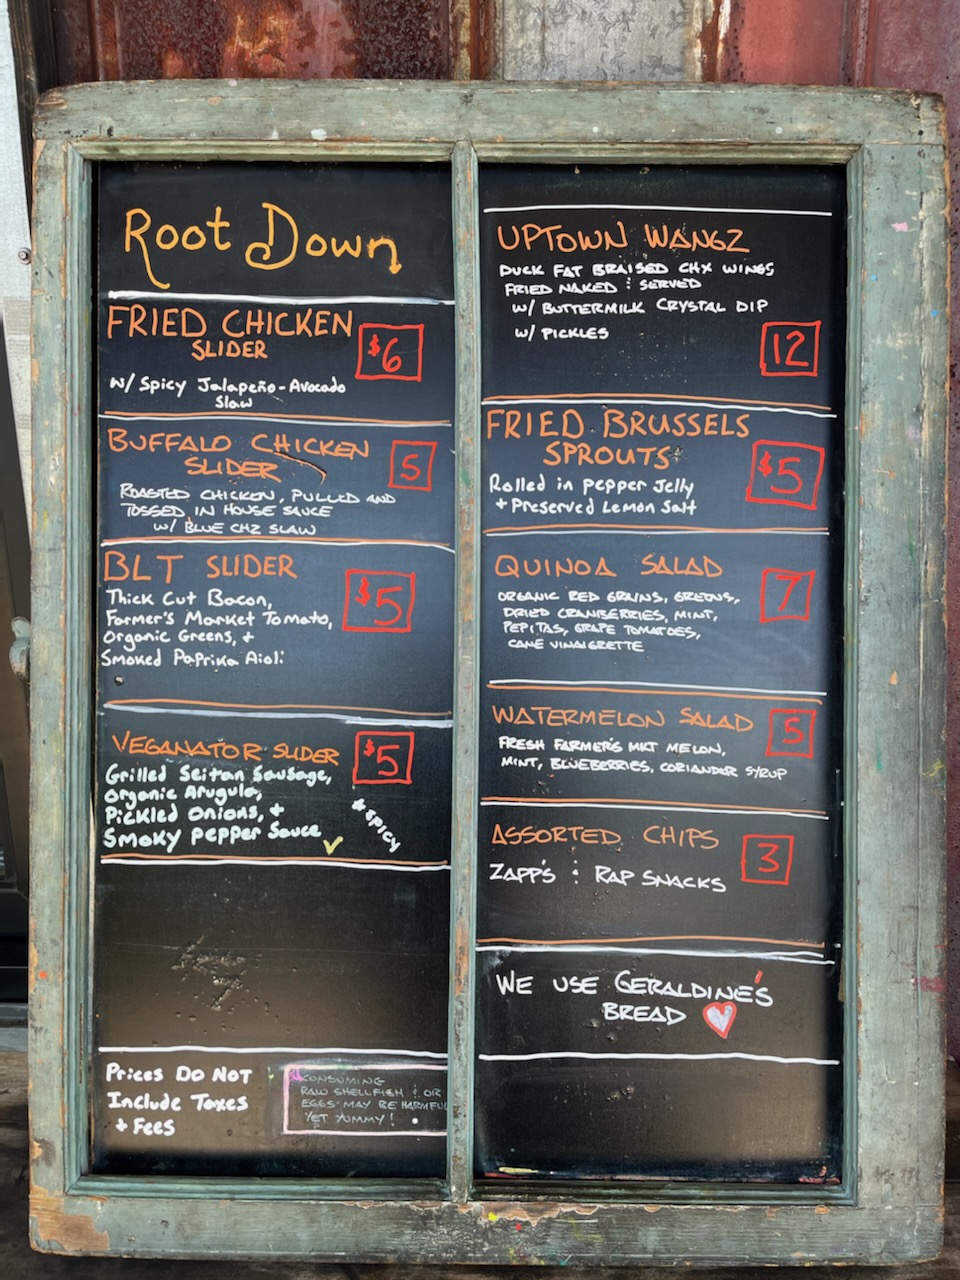 Root Down
FRIED CHICKEN
SLIDER
$6
w/ Spicy Jalapeño-Avocado
Slaw
BUFFALO CHICKEN
SLIDER
5
ROASTED CHICKEN, PULLED AND
TOSSED IN HOUSE SAUCE
w/ BLUE CHZ SLAW
BLT SLIDER
$5
Thick Cut Bacon,
Farmer's Market Tomato,
Organic Greens, +
Smoked Paprika Aioli
VEGANATOR SLIDER
$5
Grilled Seitan Sausage,
Organic Arugula,
Pickled Onions, +
Smoky Pepper Sauce
* SPICY
Prices DO NOT
Include Taxes
+ Fees
CONSUMING
RAW SHELLFISH : OR
EGGS MAY BE HARMFUL
YET YUMMY!
UPTOWN WANGZ
DUCK FAT BRAISED CHX WINGS
FRIED NAKED : SERVED
W/ BUTTERMILK CRYSTAL DIP
W/ PICKLES
12
FRIED BRUSSELS
SPROUTS
$5
Rolled in pepper Jelly
+ Preserved Lemon Salt
QUINOA SALAD
7
ORGANIC RED GRAINS, GREENS,
DRIED CRANBERRIES, MINT,
PEPITAS, GRAPE TOMATOES,
CANE VINAIGRETTE
WATERMELON SALAD
5
FRESH FARMER'S MKT MELON,
MINT, BLUEBERRIES, CORIANDER SYRUP
ASSORTED CHIPS
3
ZAPP'S : RAP SNACKS
WE USE GERALDINE'S
BREAD